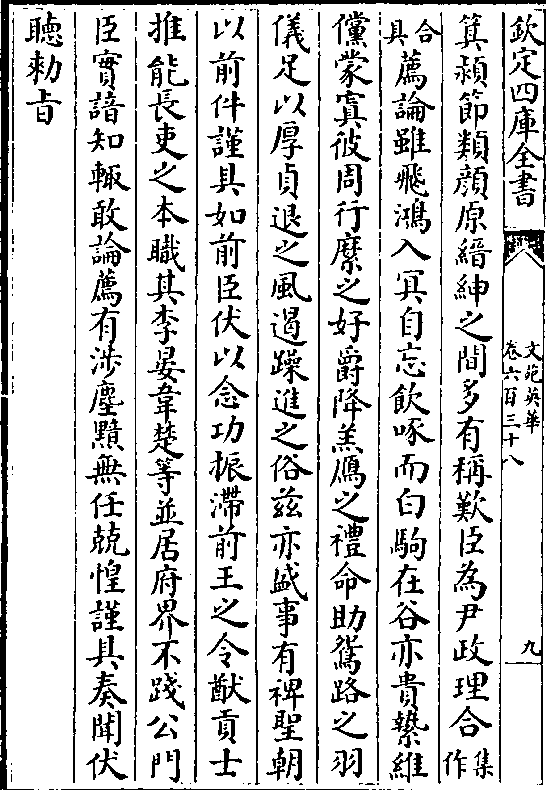 欽定四庫全書
文苑英華
卷六百三十八
九
箕潁節類顔原縉紳之間多有稱歎臣為尹政理合集作
合具薦論雖飛鴻入冥自忘飲啄而白駒在谷亦貴縶維
儻蒙寘彼周行縻之好爵降羔鴈之禮命助鴛路之羽
儀足以厚貞退之風遏躁進之俗兹亦盛事有裨聖朝
以前件謹具如前臣伏以念功振滯前王之令猷貢士
推能長吏之本職其李晏韋楚等並居府界不踐公門
臣實諳知輙敢論薦有涉塵黷無任兢惶謹具奏聞伏
聽勅旨